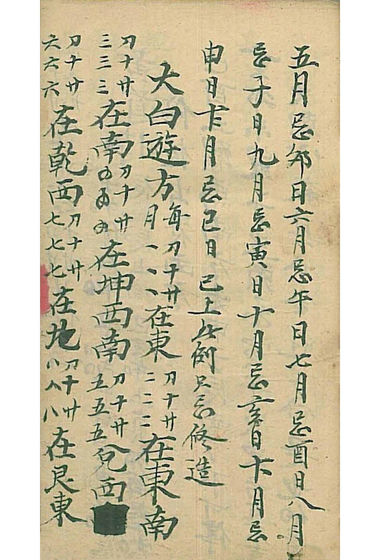 五月忌卯日六月忌午日七月忌酉日八月
忌子日九月忌寅日十月忌亥日十一月忌
申日十二月忌巳日 已上此例只忌修造
大白遊方每月刀十廿一一一在東刀十廿二二二在東南
刀十廿三三三在南刀十廿四四四在坤西南刀十廿五五五兌西
刀十廿六六六在乾西刀十廿七七七在地刀十廿八八八在艮東